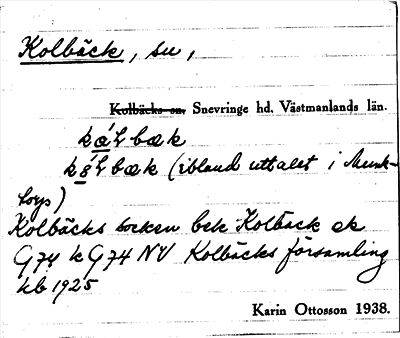 Kolbäck, su,
Kolbäcks sn, Snevringe hd. Västmanlands län.
kålbæk
kålbæk (ibland uttalet i Munk-
torp)
Kolbäcks socken bek Kolbäck ek
G74 k G74 NV Kolbäcks församling
kb 1925
Karin Ottosson 1938.